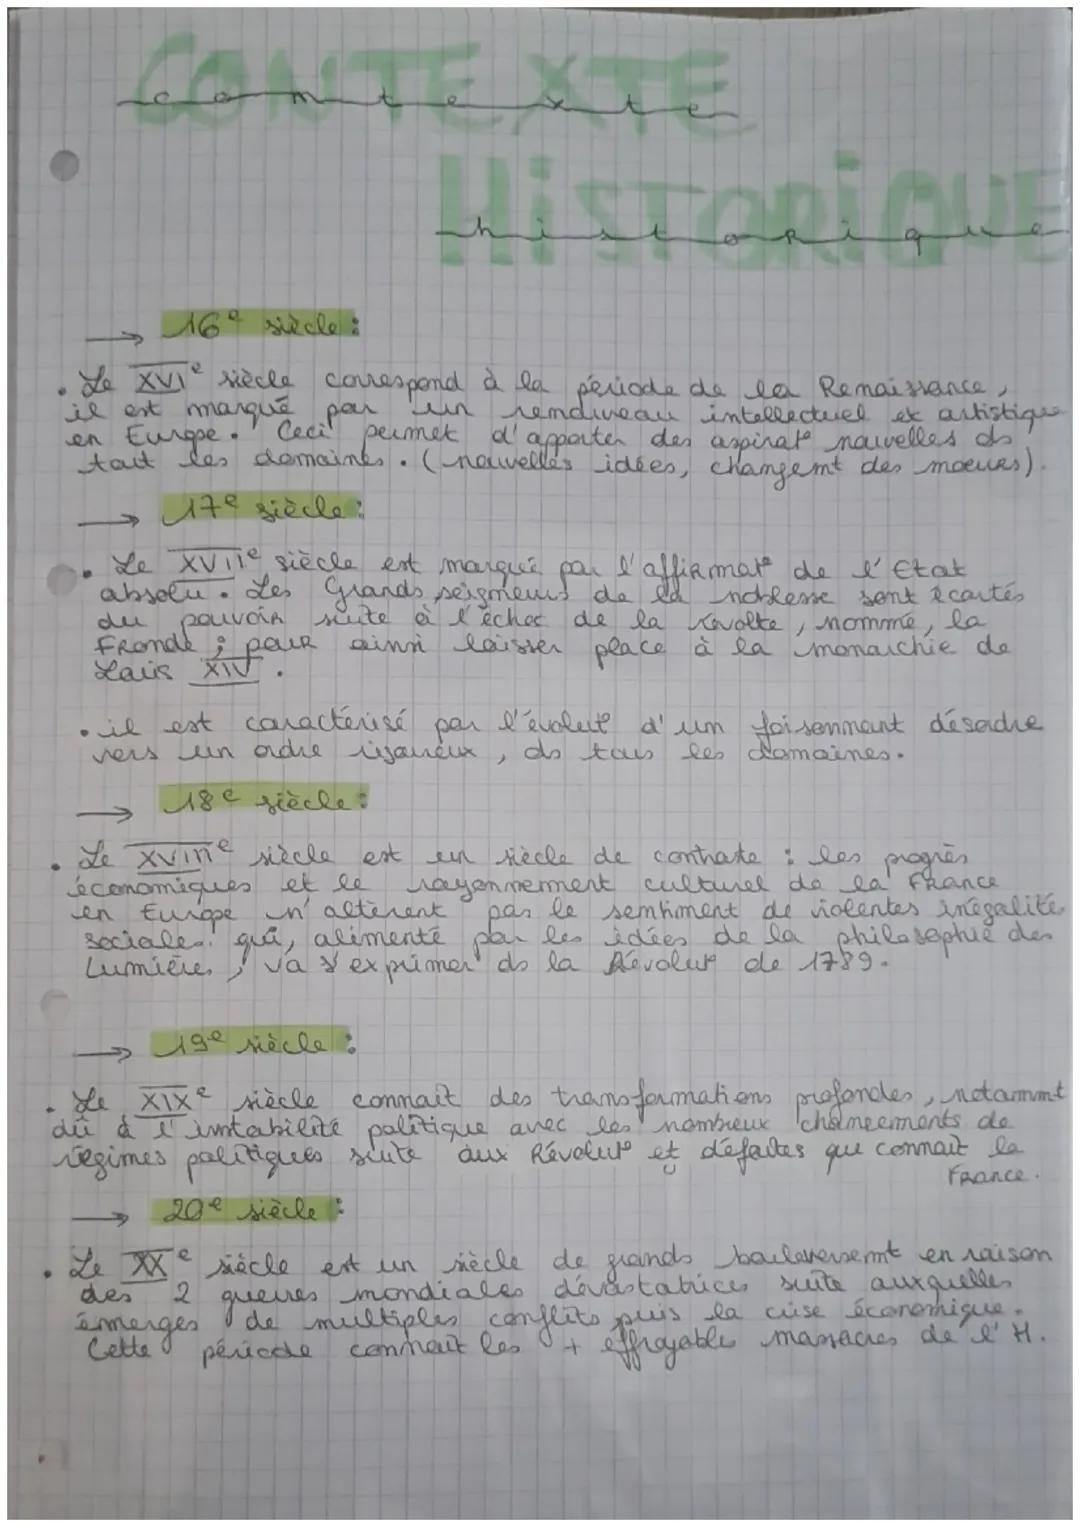 CONTEXTE
contexte
HiSTORiQUE
historique
→ 16e siècle :
• Le XVIe siècle correspond à la période de la Renaissance,
il est marqué par un renouveau intellectuel et artistique
en Europe. Ceci permet d'apporter des aspirat° nouvelles ds
tout les domaines. (nouvelles idées, changemt des moeurs).
→ 17e siècle :
• Le XVIIe siècle est marqué par l'affirmat° de l'Etat
absolu. Les Grands seigneurs de la noblesse sont écartés
du pouvoir suite à l'échec de la révolte, nommé, la
Fronde ; pour ainsi laisser place à la monarchie de
Louis XIV.
• il est caractérisé par l'évolut° d'un foisonnant désordre
vers un ordre rigoureux, ds tous les domaines.
→ 18e siècle :
• Le XVIIIe siècle est un siècle de contraste : les progrès
économiques et le rayonnement culturel de la France
en Europe n'altèrent pas le sentiment de violentes inégalités
sociales. qui, alimenté par les idées de la philosophie des
Lumières, va s'exprimer ds la Révolut° de 1789.
→ 19e siècle :
• Le XIXe siècle connait des transformations profondes, notammt
dû à l'instabilité politique avec les nombreux changements de
régimes politiques suite aux Révolut° et défaites que connait la
France.
→ 20e siècle :
• Le XXe siècle est un siècle de grands bouleversemt en raison
des 2 guerres mondiales dévastatrices suite auxquelles
émerges de multiples conflits puis la crise économique.
Cette période connait les + effroyables massacres de l'H.